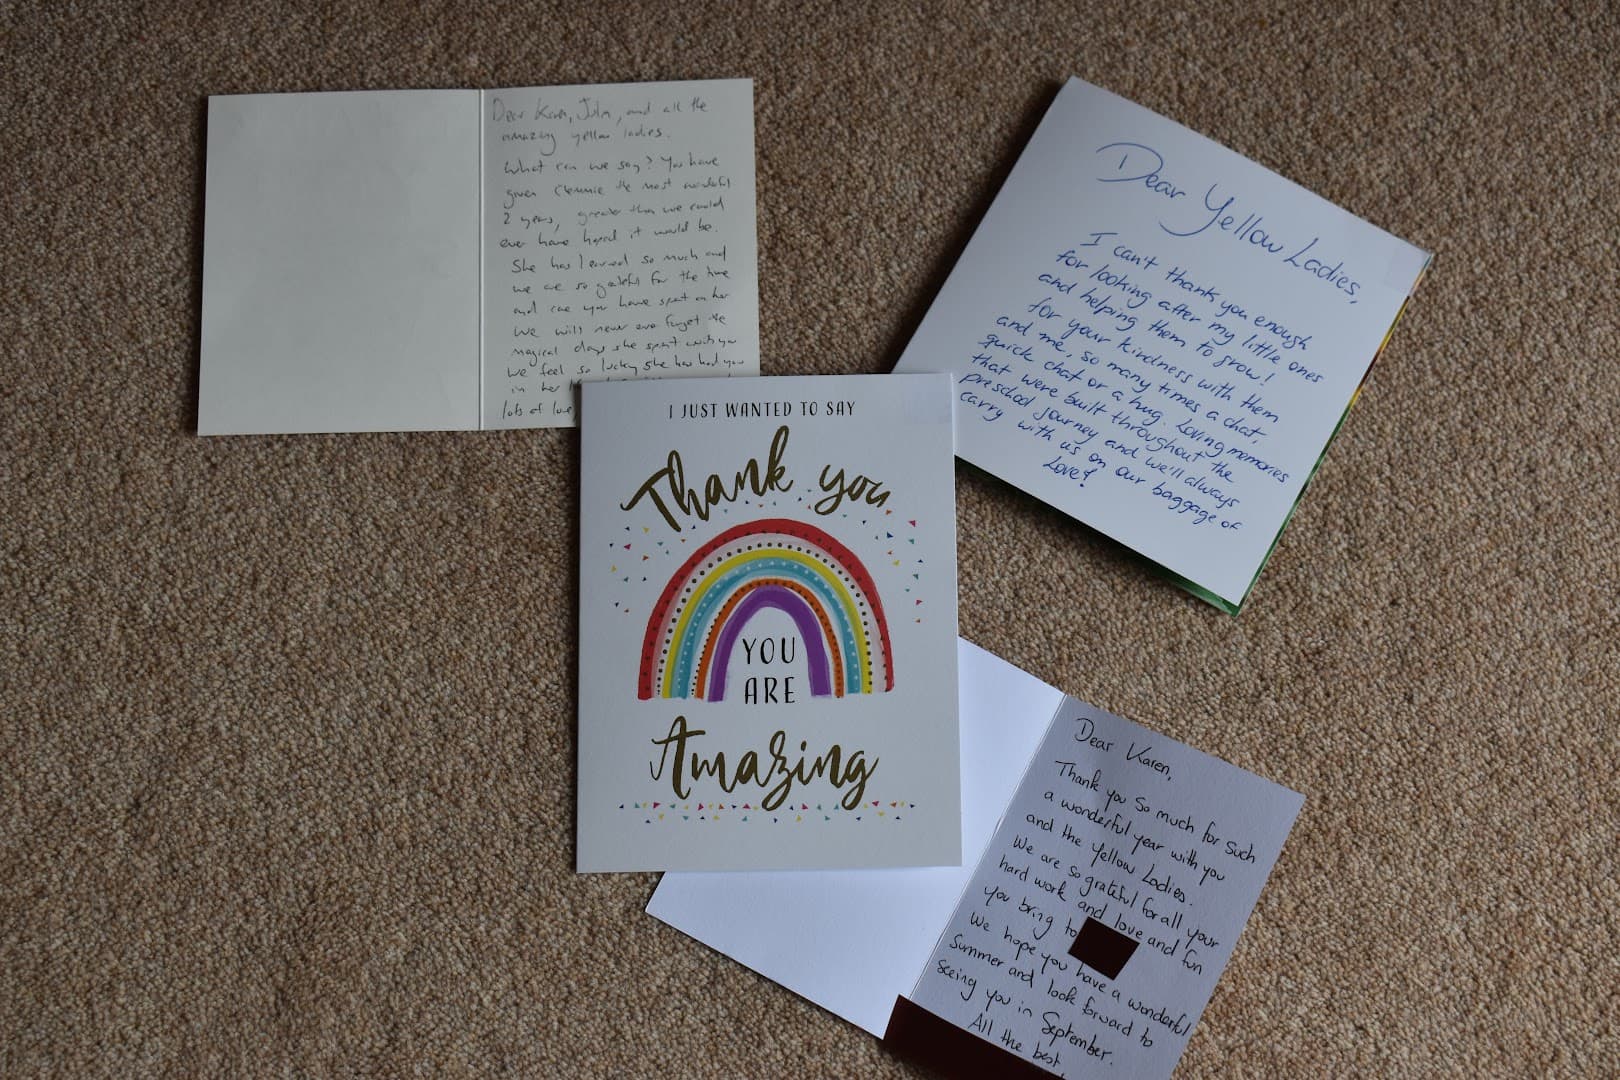 Dear Karen, Julia, and all the
amazing yellow ladies.
What can we say? You have
given Clemmie the most wonderful
2 years, greater than we could
ever have hoped it would be.
She has learned so much and
we are so grateful for the time
and care you have spent on her
We will never ever forget the
magical days she spent with you
We feel so lucky she has had you
in her
lots of love
I JUST WANTED TO SAY
Thank you
YOU
ARE
Amazing
Dear Yellow Ladies,
I can't thank you enough
for looking after my little ones
and helping them to grow!
for your kindness with them
and me, so many times a chat,
quick chat or a hug. Loving memories
that were built throughout the
preschool journey and we'll always
carry with us on our baggage of
Love!
Dear Karen,
Thank you so much for such
a wonderful year with you
and the Yellow Ladies.
We are so grateful for all your
hard work and love and fun
you bring to
We hope you have a wonderful
Summer and look forward to
seeing you in September.
All the best,